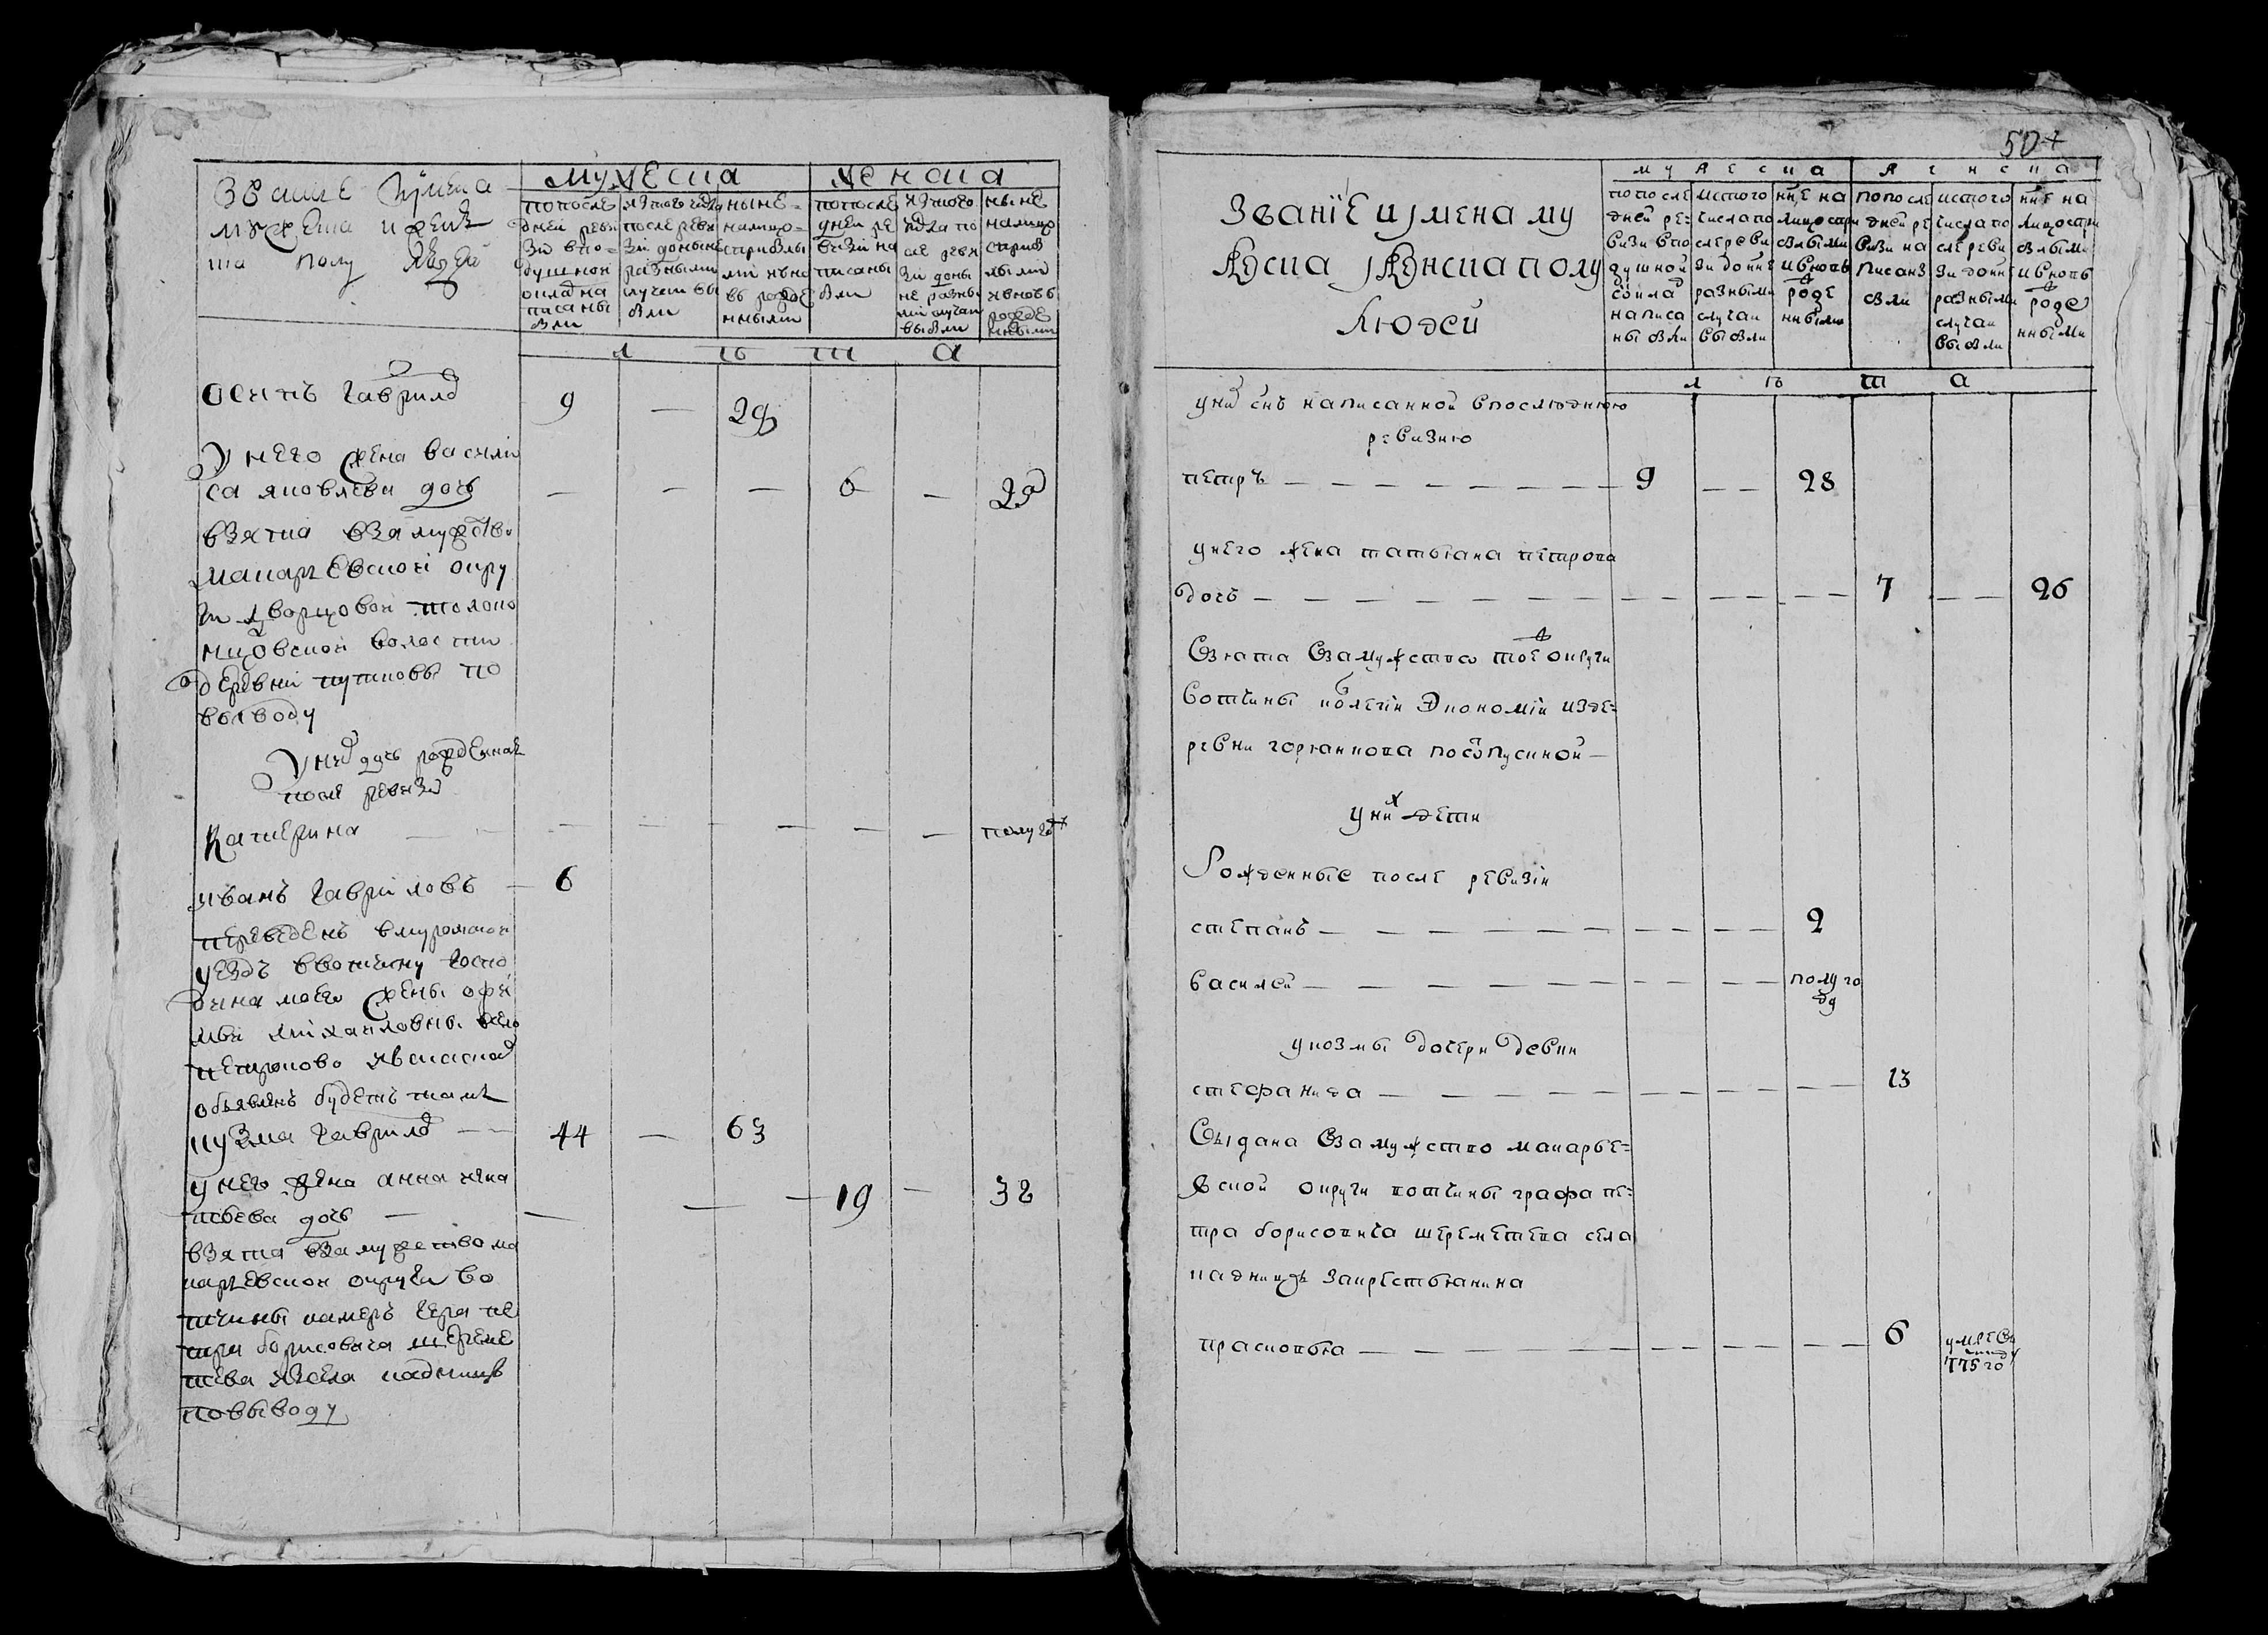 звание и имена
мужеска и женска
полу людей
мужеска
женска
по после
дней реви
зи в по
душной
оклад на
писаны
были
из того числа
после реви
зи до ныне
разными
случаи вы
были
ныне
налицо
с прибылы
ми и внов
в рожде
нными
по после
дней ре
визи на
писаны
были
из того
числа по
сле реви
зи до ны
не разны
ми случаи
выбыли
ныне
налицо
с прибы
лыми
и вновь
рожде
нными
л ѣ т а
осипъ гаврилов
9 — 29
у него жена васили
са яковлева дочь
— — — 6 — 29
взята взамужство
макарьевской окру
ги дворцовой толоко
нцовской волости
деревни
по
выводу
у них дочь рожденная
после ревизии
катерина — — — — — — полугод
иванъ гавриловъ — 6
переведенъ в муромской
уездъ в вотчину госпо
дина моего жены офи
мьи михайловны село
петроково и в сказкой
объявленъ будетъ тамъ
кузма гаврилов — 44 — 63
у него жена анна игна
тьева дочь — — — — 19 — 38
взята взамужество ма
карьевской округи во
тчины камеръ гера пе
тра борисовича шереме
тева из села кадницъ
по выводу
507
званїе и имена му
жеска и женска полу
людей
мужеска
женска
по после
дней ре=
визи в по
душной
оклад
написа
ны были
ис того
числа по
сле реви
зи до ныне
разными
случаи
выбыли
ныне на
лицо с при
былыми
и вновь
рожде
нными
по после
дней ре
визи на
писан
были
ис того
числа по
сле реви
зи до ныне
разными
случаи
выбыли
ныне на
лицо с при
былыми
и вновь
рожде
нными
л ѣ т а
у них снъ написанной в последнюю
ревизию
петръ — — — — — — — — 9 — — 28
у него жена татьяна петрова
дочь — — — — — — — — — — — — 7 — — 26
взята взамужство той округи
вотчины колегии экономїи из де=
ревни по отпускной —
у них дети
рожденные после ревизїи
степанъ — — — — — — — — — — 2
василей — — — — — — — — — — полуго
ду
у козмы дочери девки
стефанида — — — — — — — — — — — 13
выдана взамужство макарье=
вской округи вотчины графа пе=
тра борисовича шереметева села
кадницъ за крестьянина
прасковья — — — — — — — — — — — 6
умре в
775 го